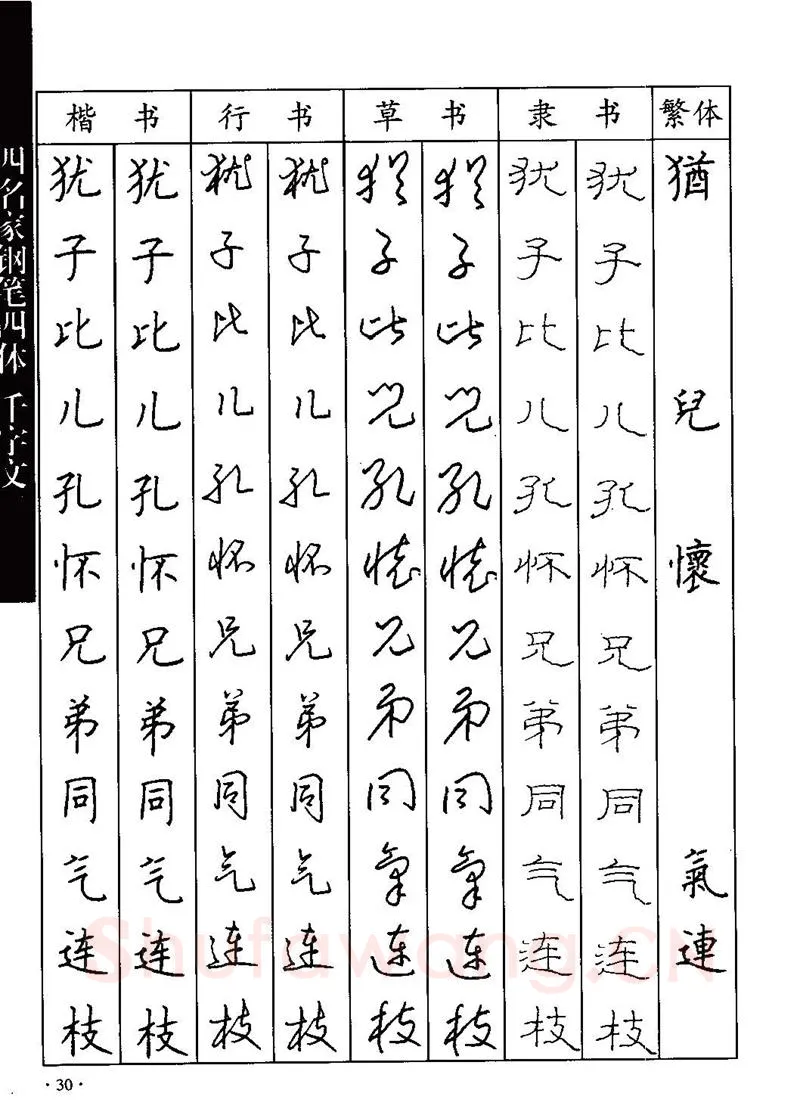 四名家钢笔四体 千字文
楷书 行书 草书 隶书 繁体
犹 犹 犹 犹 犹 犹 犹 犹 猶
子 子 子 子 子 子 子 子
比 比 比 比 比 比 比 比
儿 儿 儿 儿 兒 兒 儿 儿 兒
孔 孔 孔 孔 孔 孔 孔 孔
怀 怀 怀 怀 懷 懷 怀 怀 懷
兄 兄 兄 兄 兄 兄 兄 兄
弟 弟 弟 弟 弟 弟 弟 弟
同 同 同 同 同 同 同 同
气 气 气 气 氣 氣 气 气 氣
连 连 连 连 连 连 连 连 連
枝 枝 枝 枝 枝 枝 枝 枝
Shufawang.CN
·30·